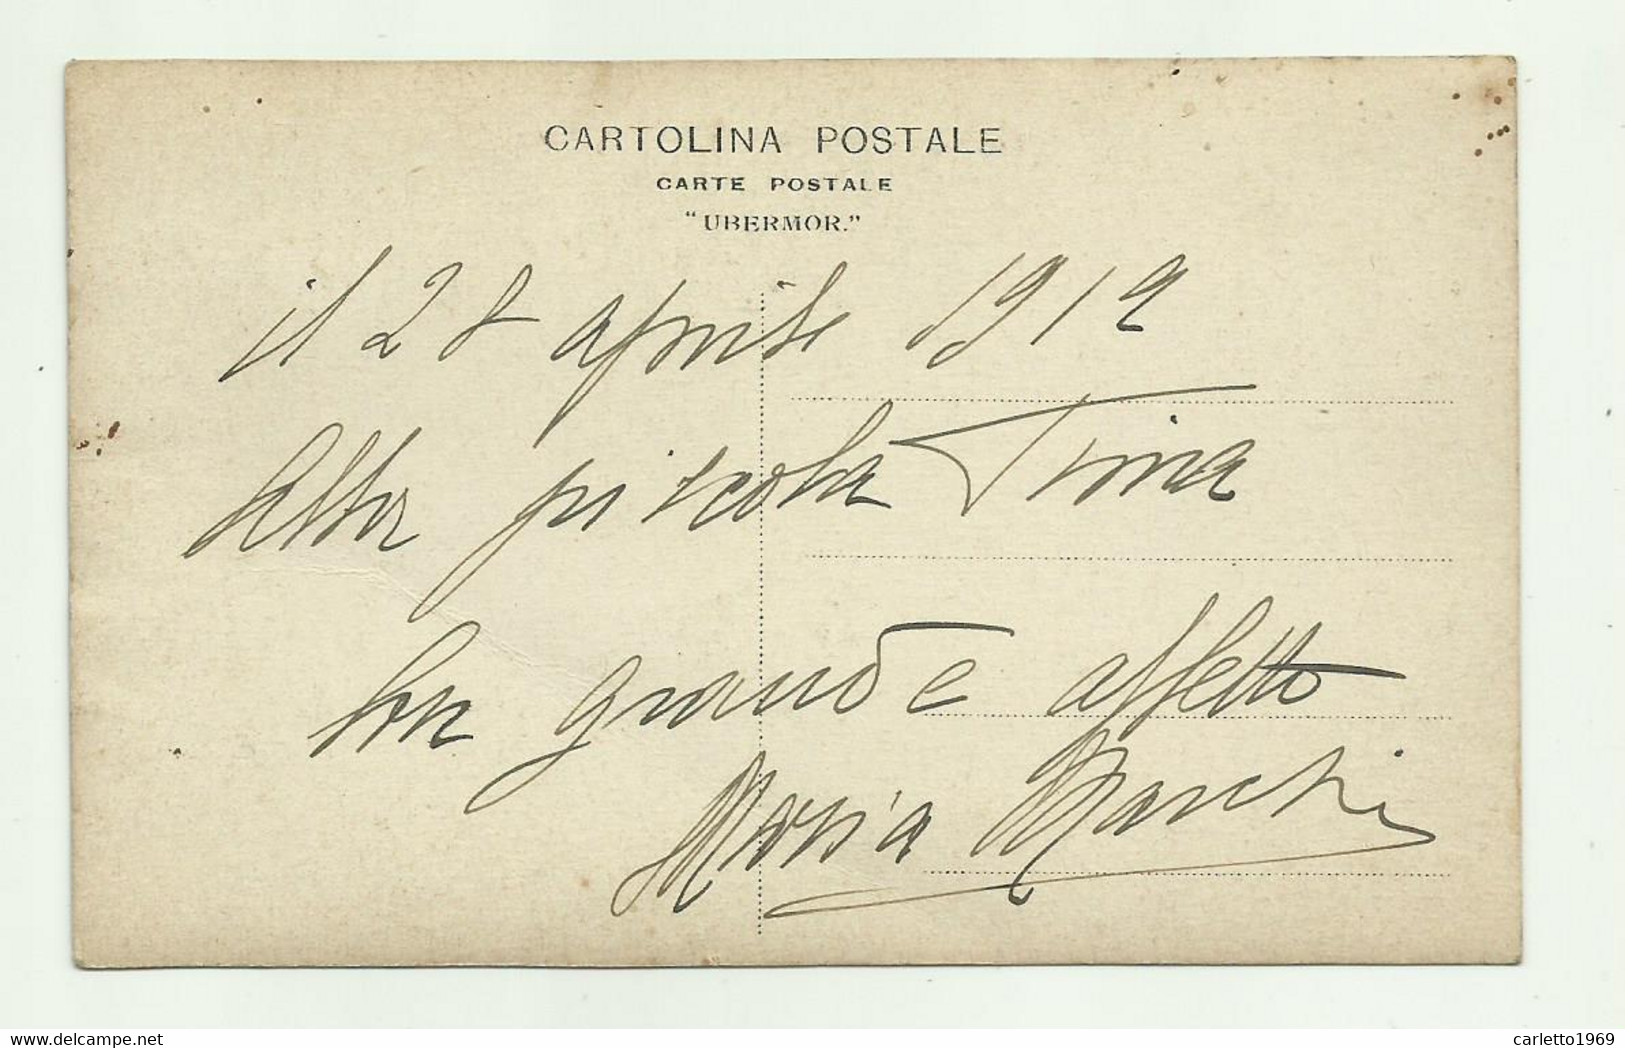 CARTOLINA POSTALE
CARTE POSTALE
"UBERMOR."
il 28 aprile 1912
Alla piccola Tina
con grande affetto
Maria Marchi
delcampe.net
carletto1969